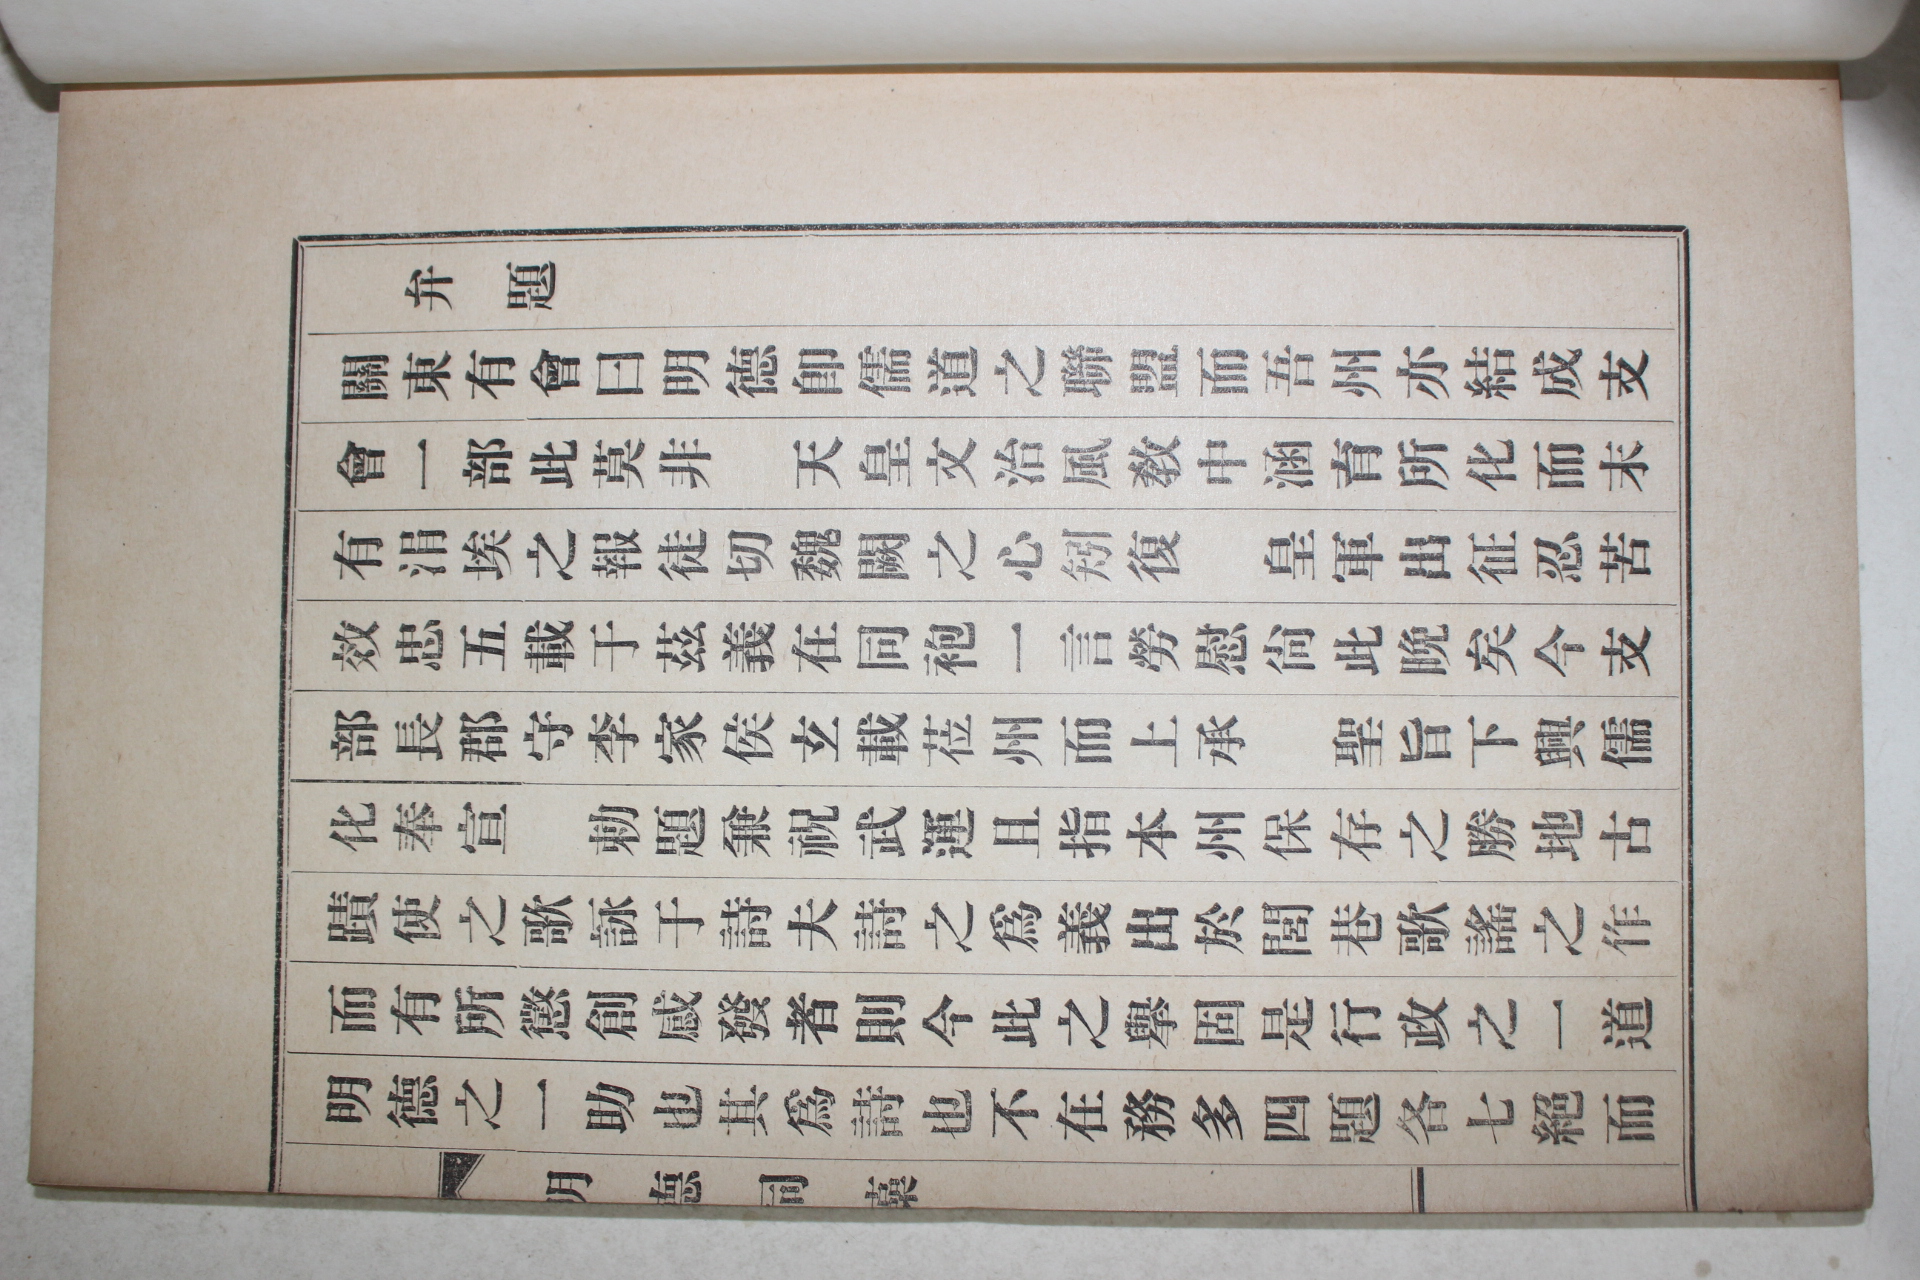 弁題
關東有會曰明德卽儒道之聯盟而吾州亦結成支
會一部此莫非　天皇文治風敎中涵育所化而末
有涓埃之報徒切魏闕之心矧復　皇軍出征忍苦
效忠五載于茲義在同袍一言勞慰尙此晩矣今支
部長郡守李家侯玄載莅州而上承　聖旨下興儒
化奉宣　勅題兼祝武運且指本州保存之勝地古
蹟使之歌詠于詩夫詩之爲義出於閭巷歌謠之作
而有所懲創感發者則今此之擧固是行政之一道
明德之一助也其爲詩也不在務多四題各七絕而
明德詞藻